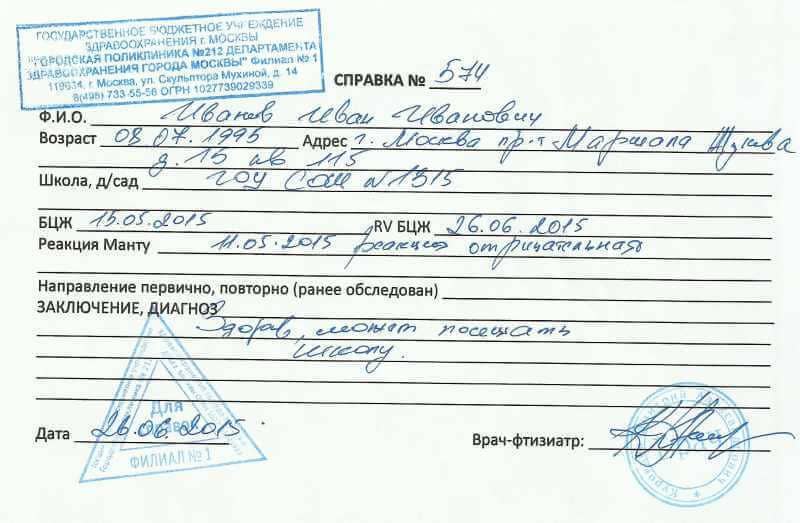 ГОСУДАРСТВЕННОЕ БЮДЖЕТНОЕ УЧРЕЖДЕНИЕ
ЗДРАВООХРАНЕНИЯ г. МОСКВЫ
"ГОРОДСКАЯ ПОЛИКЛИНИКА №212 ДЕПАРТАМЕНТА
ЗДРАВООХРАНЕНИЯ ГОРОДА МОСКВЫ" Филиал № 1
119634, г. Москва, ул. Скульптора Мухиной, д. 14
8(495) 733-55-56 ОГРН 1027739029339
СПРАВКА № 574
Ф.И.О. Иванов Иван Иванович
Возраст 08.07.1995 Адрес г. Москва пр-т Маршала Жукова
д. 15 кв 115
Школа, д/сад ГОУ СОШ N1315
БЦЖ 15.05.2015 RV БЦЖ 26.06.2015
Реакция Манту 11.05.2015 реакция отрицательная
Направление первично, повторно (ранее обследован)
ЗАКЛЮЧЕНИЕ, ДИАГНОЗ
Здоров, может посещать
школу.
Для
Дата 26.06.2015
Врач-фтизиатр:
ФИЛИАЛ № 1